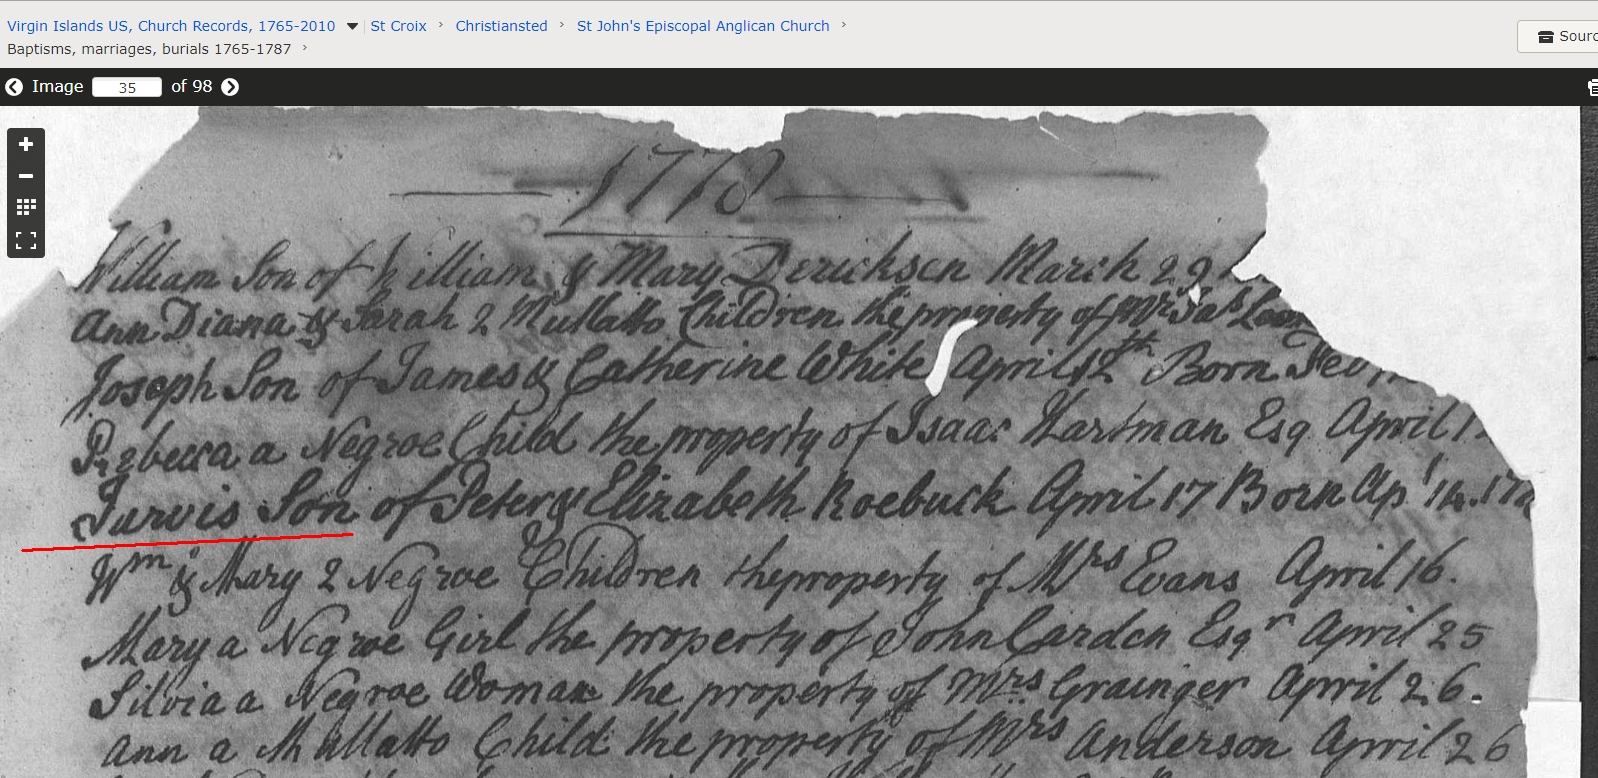 Virgin Islands US, Church Records, 1765-2010 St Croix › Christiansted › St John's Episcopal Anglican Church ›
Baptisms, marriages, burials 1765-1787 ›
Sourc
Image 35 of 98
1778
William Son of William & Mary Dericksen March 29
Ann Diana & Sarah 2 Mullatto Children the property of Mr Jas
Joseph Son of James & Catherine White April 12th Born
Rebecca a Negroe Child the property of Isaac Hartman Esq April
Jurvis Son of Peter & Elizabeth Roebuck April 17 Born Apl 14.
Wm & Mary 2 Negroe Children the property of Mrs Evans April 16.
Mary a Negroe Girl the property of John Carden Esqr April 25
Silvia a Negroe Woman the property of Mrs Grainger April 26.
Ann a Mullatto Child the property of Mrs Anderson April 26